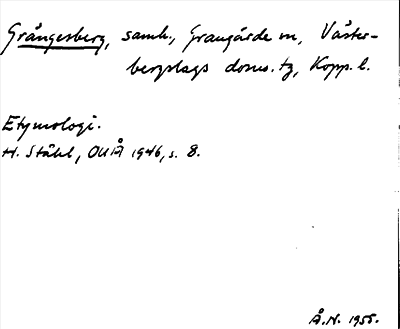 Grängesberg, samh., Grangärde sn, Väster-
bergslags doms. tg, Kopp. l.
Etymologi.
H. Ståhl, OUÅ 1946, s. 8.
Å.N. 1955.